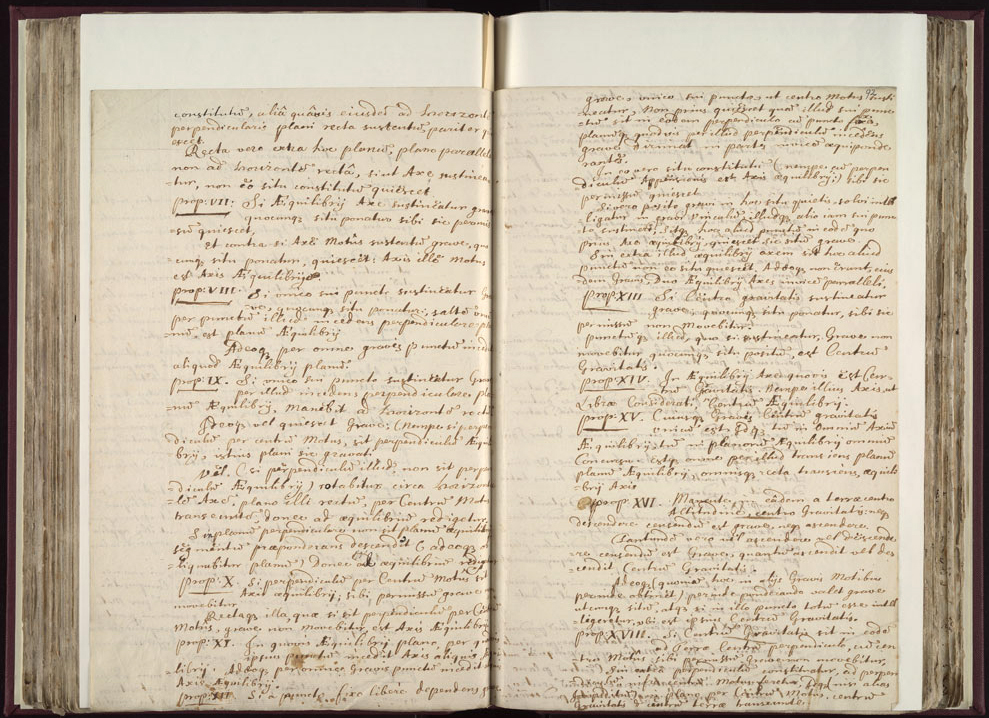 constitutū, aliâ quâvis eiusdē ad horizont
perpendicularis plani recta sustentū pariter q
escēt.
Recta vero extra hoc planū, plano parallel
non ad horizontē rectâ, sive Axe sustinea
tur, non eo situ constitutū quiescēt
prop: VII: Si Æquilibrij Axe sustineatur grav
quocunq situ ponatur sibi sic permis
sū quiescēt,
Et contra si Axē Motûs sustentū grave, quo
cunq situ ponatur, quiescēt: Axis ille Motus
est Axis Æquilibrij
prop: VIII: Si unico sui punct. sustineatur
quocunq situ ponatur,
per punctū illud incedens perpendiculare pla
nū, est planū Æquilibrij
Adeoq per omne gravis punctū incedit
aliquod Æquilibrij planū.
prop: IX. Si unico sui puncto sustineatur Grave
per illud incedens perpendiculare pla
nū Æquilibrij, manebit ad horizontē rectū
Adeoq vel quiescēt Grave: (Nempe si perpen
diculū per centrū Motus, sit perpendiculū Æqui
brij, istius plani sic gravati
Vel (si perpendiculū illud non sit perpen
diculū Æquilibrij) rotabitur circa horizon
tālē Axē, plano illi rectū, per Centrū Motus
transeuntē, donec ad æquilibriū redigatur.
Si in plano perpendiculari non sit planū æquilibrij
segmentū præponderans descendēt (adeoq
liquabitur planū) Donec ad æquilibriū redigatur
Prop: X. Si perpendiculū per Centrū Motus sit
Axis æquilibrij; sibi permissū grave non
movebitur
Rectaq illa, quæ si sit perpendiculū per Cētrū
Motus, grave non movebitur, est Axis Æquilibrij
prop: XI. In quovis Æquilibrij plano, per quod
ipsius punctū incedit Axis aliquis
librij. Adeoq per omne Gravis punctū incedit
Axis Æquilibrij.
prop: XII Si a puncto fixo libere dependens gra
grave, unico sui puncto, ut centro Motus susti
neatur, Non prius quiescet quā illud sui punc
tū sit in eodem perpendiculo cū puncto fixo,
planūq quodvis per illud perpendiculū incedens
gravē dirimat in partes invicē æquiponde
rantes.
In eo vero situ constitutū (nempe cū perpen
diculū Appensionis est Axis æquilibrij) sibi sic
permissū quiescēt.
Si vero posito gravi in hoc situ quietis, solvi intell
ligatur prius vinculū, illudq alio cum sui punc
to sustineri, sitq hoc aliud punctū in eodē quo
prius Axe æquilibrij, quiescēt sic situ grave.
Sin extra illud æquilibrij axem sit hoc aliud
punctū non eo situ quiescēt, Adeoq non erunt, eius
dem Gravis, Duo Æquilibrij Axes invicē paralleli.
prop XIII Si Centro gravitatis sustineatur
grave, quocunq situ ponatur, sibi sic
permissū non movebitur.
punctūq illud, quo si sustineatur Grave non
movebitur quocunq situ positū, est Centrū
Gravitatis.
prop XIV. In Æquilibrij Axe quovis est Cen
trū Gravitatis. Nempe illius Axis, ut
Libræ Considerati, Centrū Æquilibrij.
prop: XV. Cuiusq Gravis Centrū gravitatis
unicū est. Idq tū in Omniū Axiū
Æquilibrij, tū in planorū Æquilibrij omniū
Concursu: estq omne per illud transiens planū
planū Æquilibrij, omnisq recta transiens, æquili
brij Axis
prop XVI. Manente eâdem a terræ centro
Altitudine, centro Gravitatis: neq
descendere censendū est grave, neq ascendere.
Tantundē vero vel ascendere vel descende
re censendū est Grave, quantū ascendit vel des
cendit Centrū Gravitatis.
Adeoq (quoniā hoc in alijs Gravis Motibus
perinde obtinet) perinde ponderando valet grave
utcunq sitū, atq si in illo puncto totū esse intel
ligeretur, ubi est ipsius Centrū Gravitatis.
prop XVIII. Si Centrū Gravitatis sit in eodē
ad Terræ Centrū perpendiculo, cū cen
tro Motus; sibi permissū Grave non movebitur,
Sin extra perpendiculū constituatur, ad perpen
Motus feretur, (nisi alias
per Centrū Motus, centrū
gravitatis & centrū terræ transeuntē.